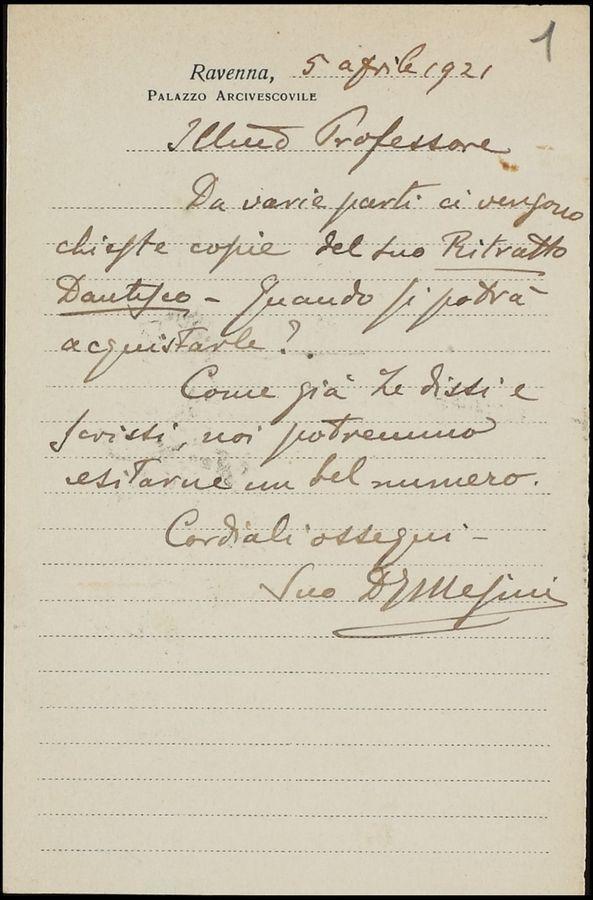 1
Ravenna, 5 aprile 1921
PALAZZO ARCIVESCOVILE
Illmo Professore
Da varie parti ci vengono
chieste copie del suo Ritratto
Dantesco - Quando si potrà
acquistarle?
Come già Le dissi e
scrissi, noi potremmo
esitarne un bel numero.
Cordiali ossequi -
Suo D G Mesini